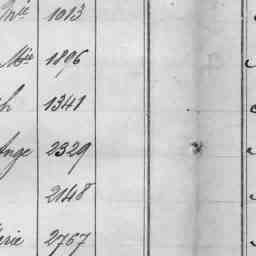 1013
Mie 1896
h 1341
Ange 2329
2148
erie 2767